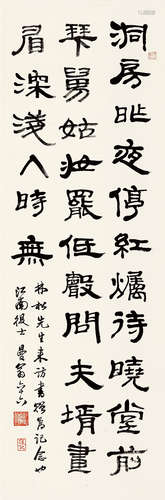 洞房昨夜停紅爥待曉堂前
拜舅姑妝罷低聲問夫壻畫
眉深淺入時無
林松先生来訪書記念也
江南後士曼翁